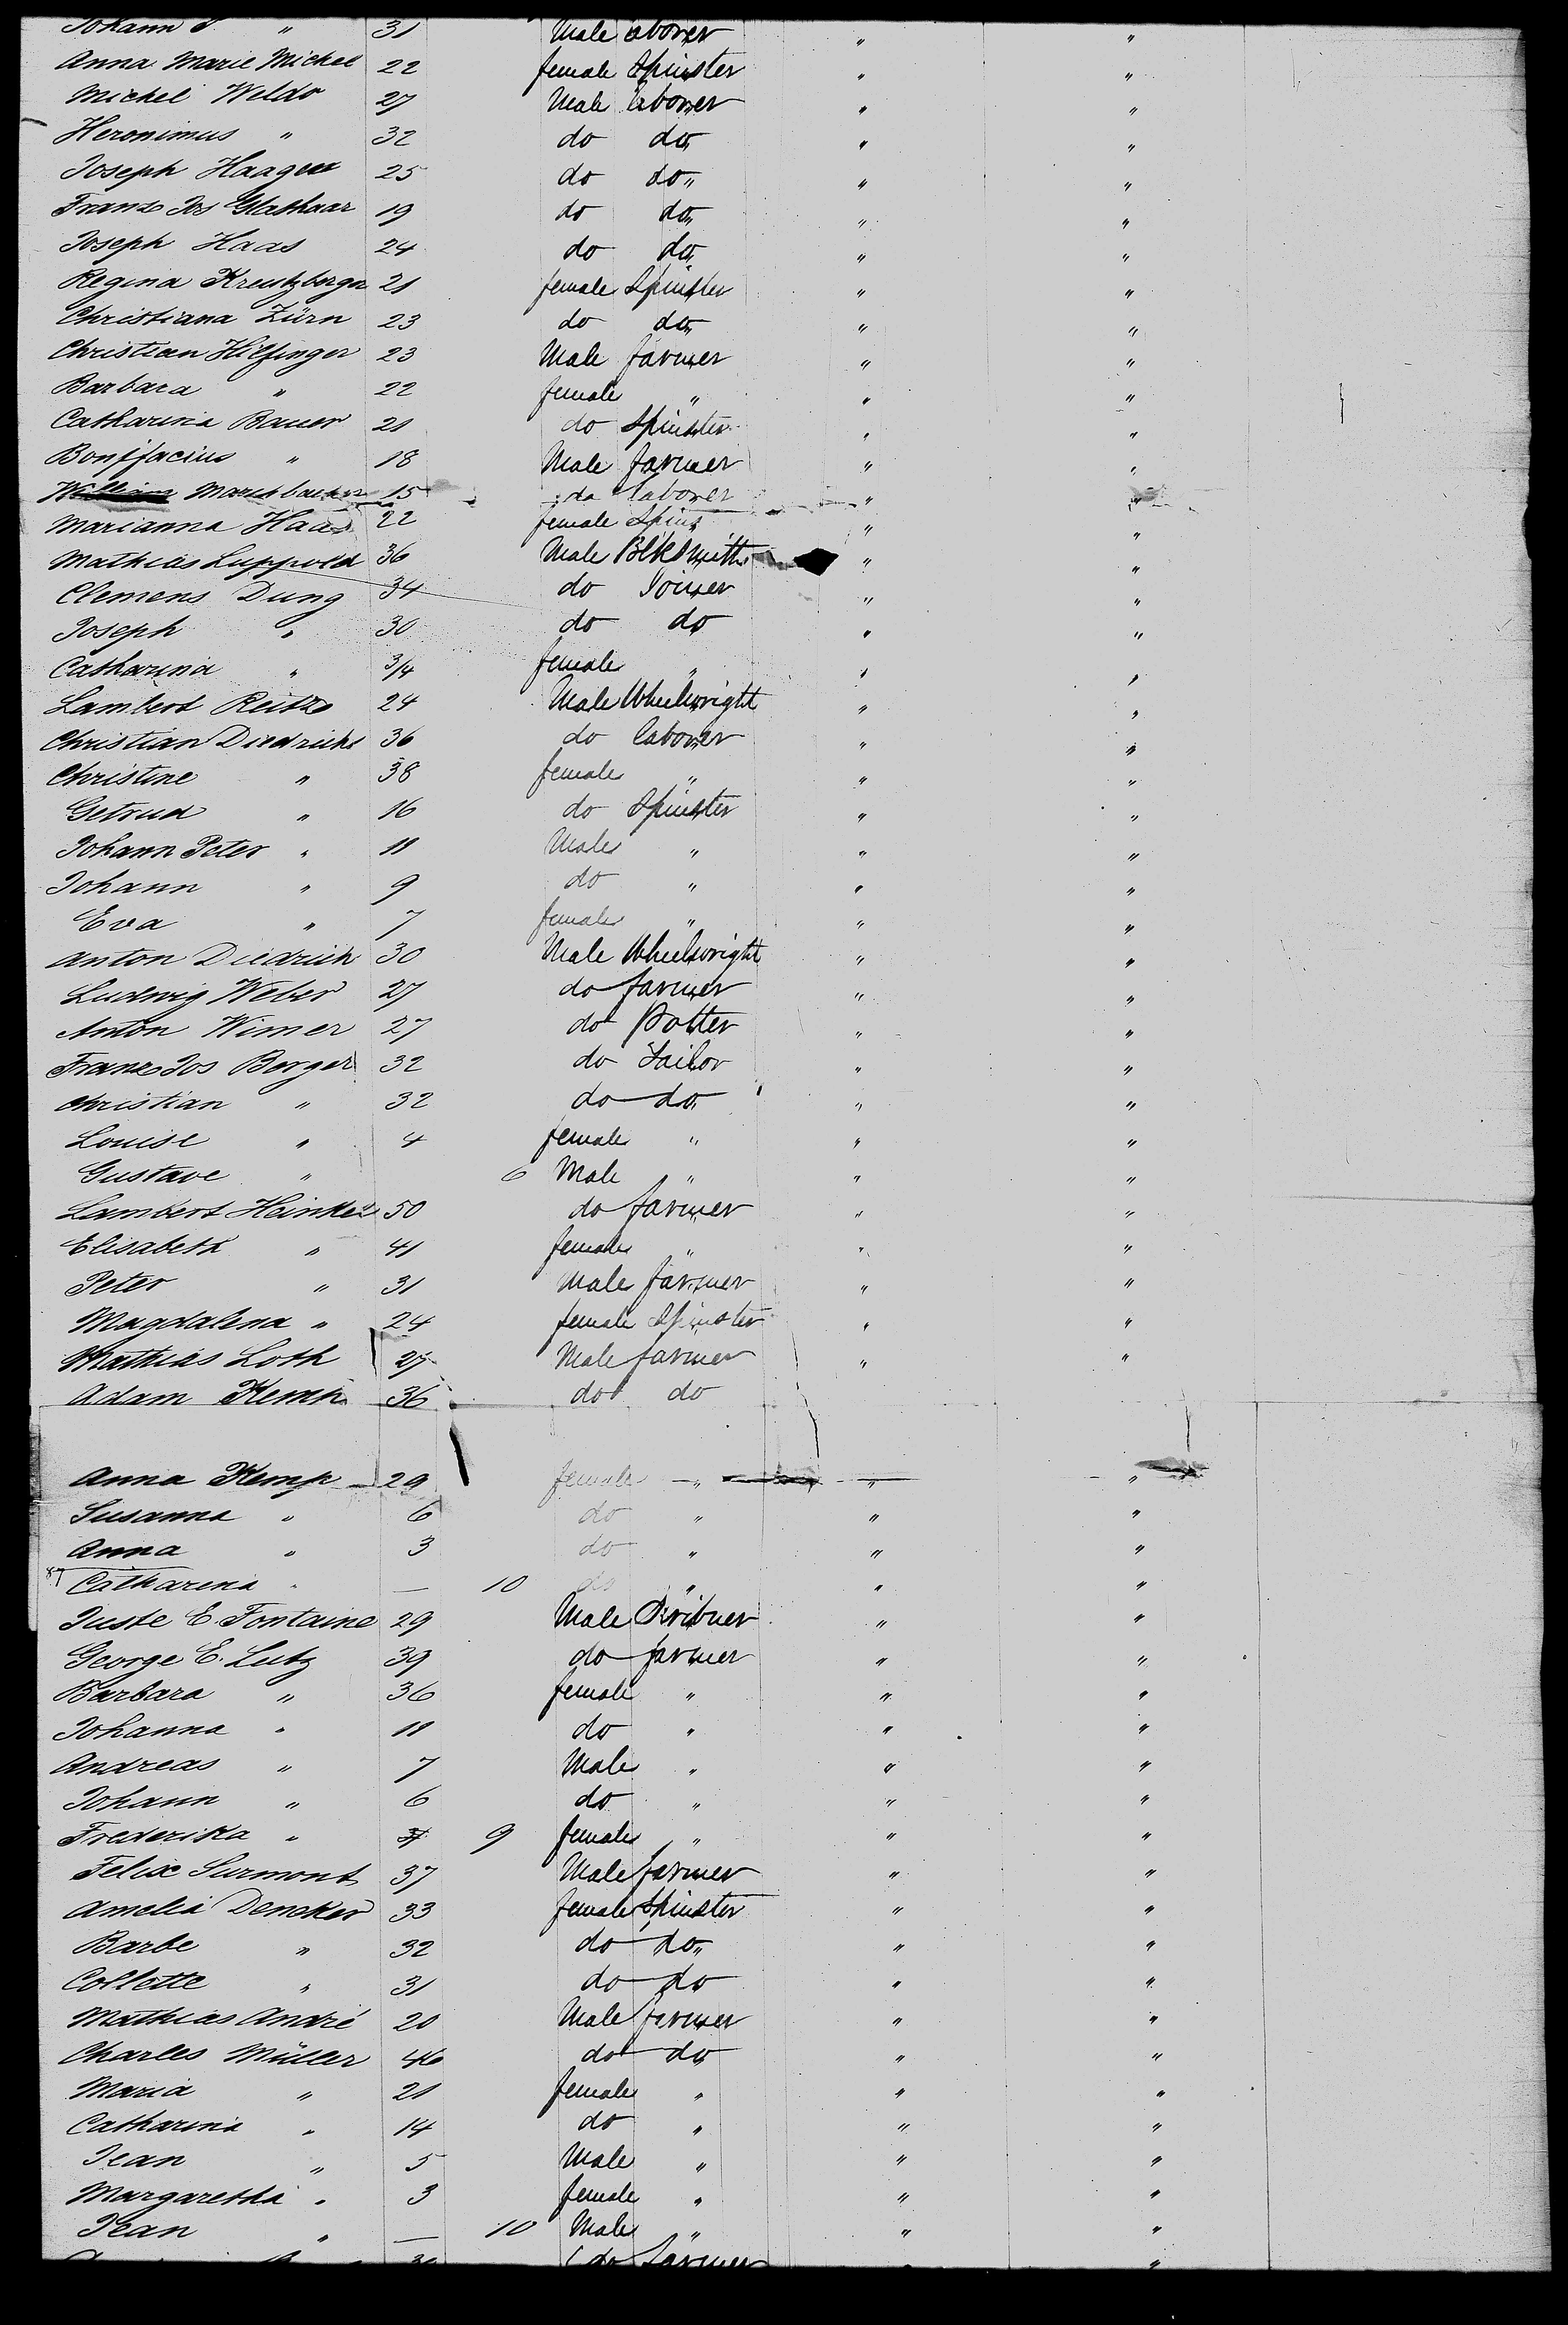 Johann " 31 Male laborer " "
Anna Marie Michel 22 female Spinster " "
Michel Weldo 27 Male laborer " "
Heronimus " 32 do do " "
Joseph Haager 25 do do " "
Franz Jos Glathaar 19 do do " "
Joseph Haas 24 do do " "
Regina Kreutzberger 21 female Spinster " "
Christiana Zürn 23 do do " "
Christian Hilfinger 23 Male farmer " "
Barbara " 22 female " " "
Catharina Bauer 21 do Spinster " "
Bonifacius " 18 Male farmer " "
William 15 do laborer " "
Marianna Haas 22 female Spins " "
Mathias Luppold 36 Male Blksmith " "
Clemens Dung 34 do Joiner " "
Joseph " 30 do do " "
Catharina " 3/4 female " " "
Lambert Reitz 24 Male Wheelwright " "
Christian Diedrichs 36 do laborer " "
Christine " 38 female " " "
Getrud " 16 do Spinster " "
Johann Peter " 11 Male " " "
Johann " 9 do " " "
Eva " 7 female " " "
Anton Diedrich 30 Male Wheelwright " "
Ludwig Weber 27 do farmer " "
Anton Wimer 27 do Potter " "
Franz Jos Berger 32 do Tailor " "
Christian " 32 do do " "
Louise " 4 female " " "
Gustave " 6 Male " " "
Lambert Heinkel 50 do farmer " "
Elisabeth " 41 female " " "
Peter " 31 Male farmer " "
Magdalena " 24 female Spinster " "
Mathias Loth 27 Male farmer " "
Adam Kemp 36 do do
Anna Kemp 29 female " " "
Susanna " 6 do " " "
Anna " 3 do " " "
Catharina " — 10 do " " "
Juste E. Fontaine 29 Male Scribner " "
George E. Lutz 39 do farmer " "
Barbara " 36 female " " "
Johanna " 11 do " " "
Andreas " 7 Male " " "
Johann " 6 do " " "
Frederika " 9 female " " "
Felix Surmont 37 Male farmer " "
Amelia Dencker 33 female Spinster " "
Barbe " 32 do do " "
Collette " 31 do do " "
Mathias André 20 Male farmer " "
Charles Müller 46 do do " "
Maria " 21 female " " "
Catharina " 14 do " " "
Jean " 5 Male " " "
Margaretha " 3 female " " "
Jean " — 10 Male " " "
do farmer " "